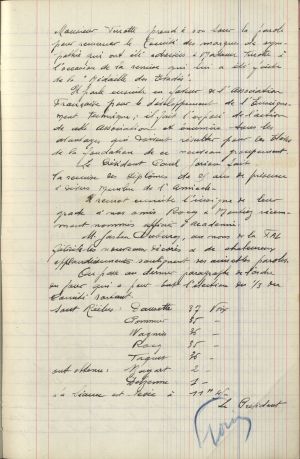 Monsieur Turotte prend à son tour la parole
pour remercier le Comité des marques de sym-
pathie qui ont été adressées à Madame Turotte à
l'occasion de la remise qui lui a été faite
de la "Médaille des Etudes".
Il parle ensuite en faveur de l'Association
Française pour le développement de l'Enseigne-
ment Technique; il fait l'exposé de l'action
de cette Association, et énumère tous les
avantages qui doivent résulter pour les Elèves
de la fondation de ce nouveau groupement.
Le Président fait
la remise des diplômes de 25 ans de présence
à divers Membres de l'Amicale.
Il remet ensuite l'insigne de leur
grade à nos amis Rocq & récem-
ment nommés officiers d'académie.
M. au nom de la
félicite les nouveaux décorés, & de chaleureux
applaudissements soulignent ses aimables paroles.
On passe au dernier paragraphe de l'ordre
du jour qui a pour but l'élection des 1/3 du
Comité sortant.
Sont Réélus: 37 Voix
Pommier 35 -
Wagner 36 -
Rocq 35 -
Taquet 36 -
ont obtenu: 2 -
1 -
La Séance est levée à 11H
Le Président